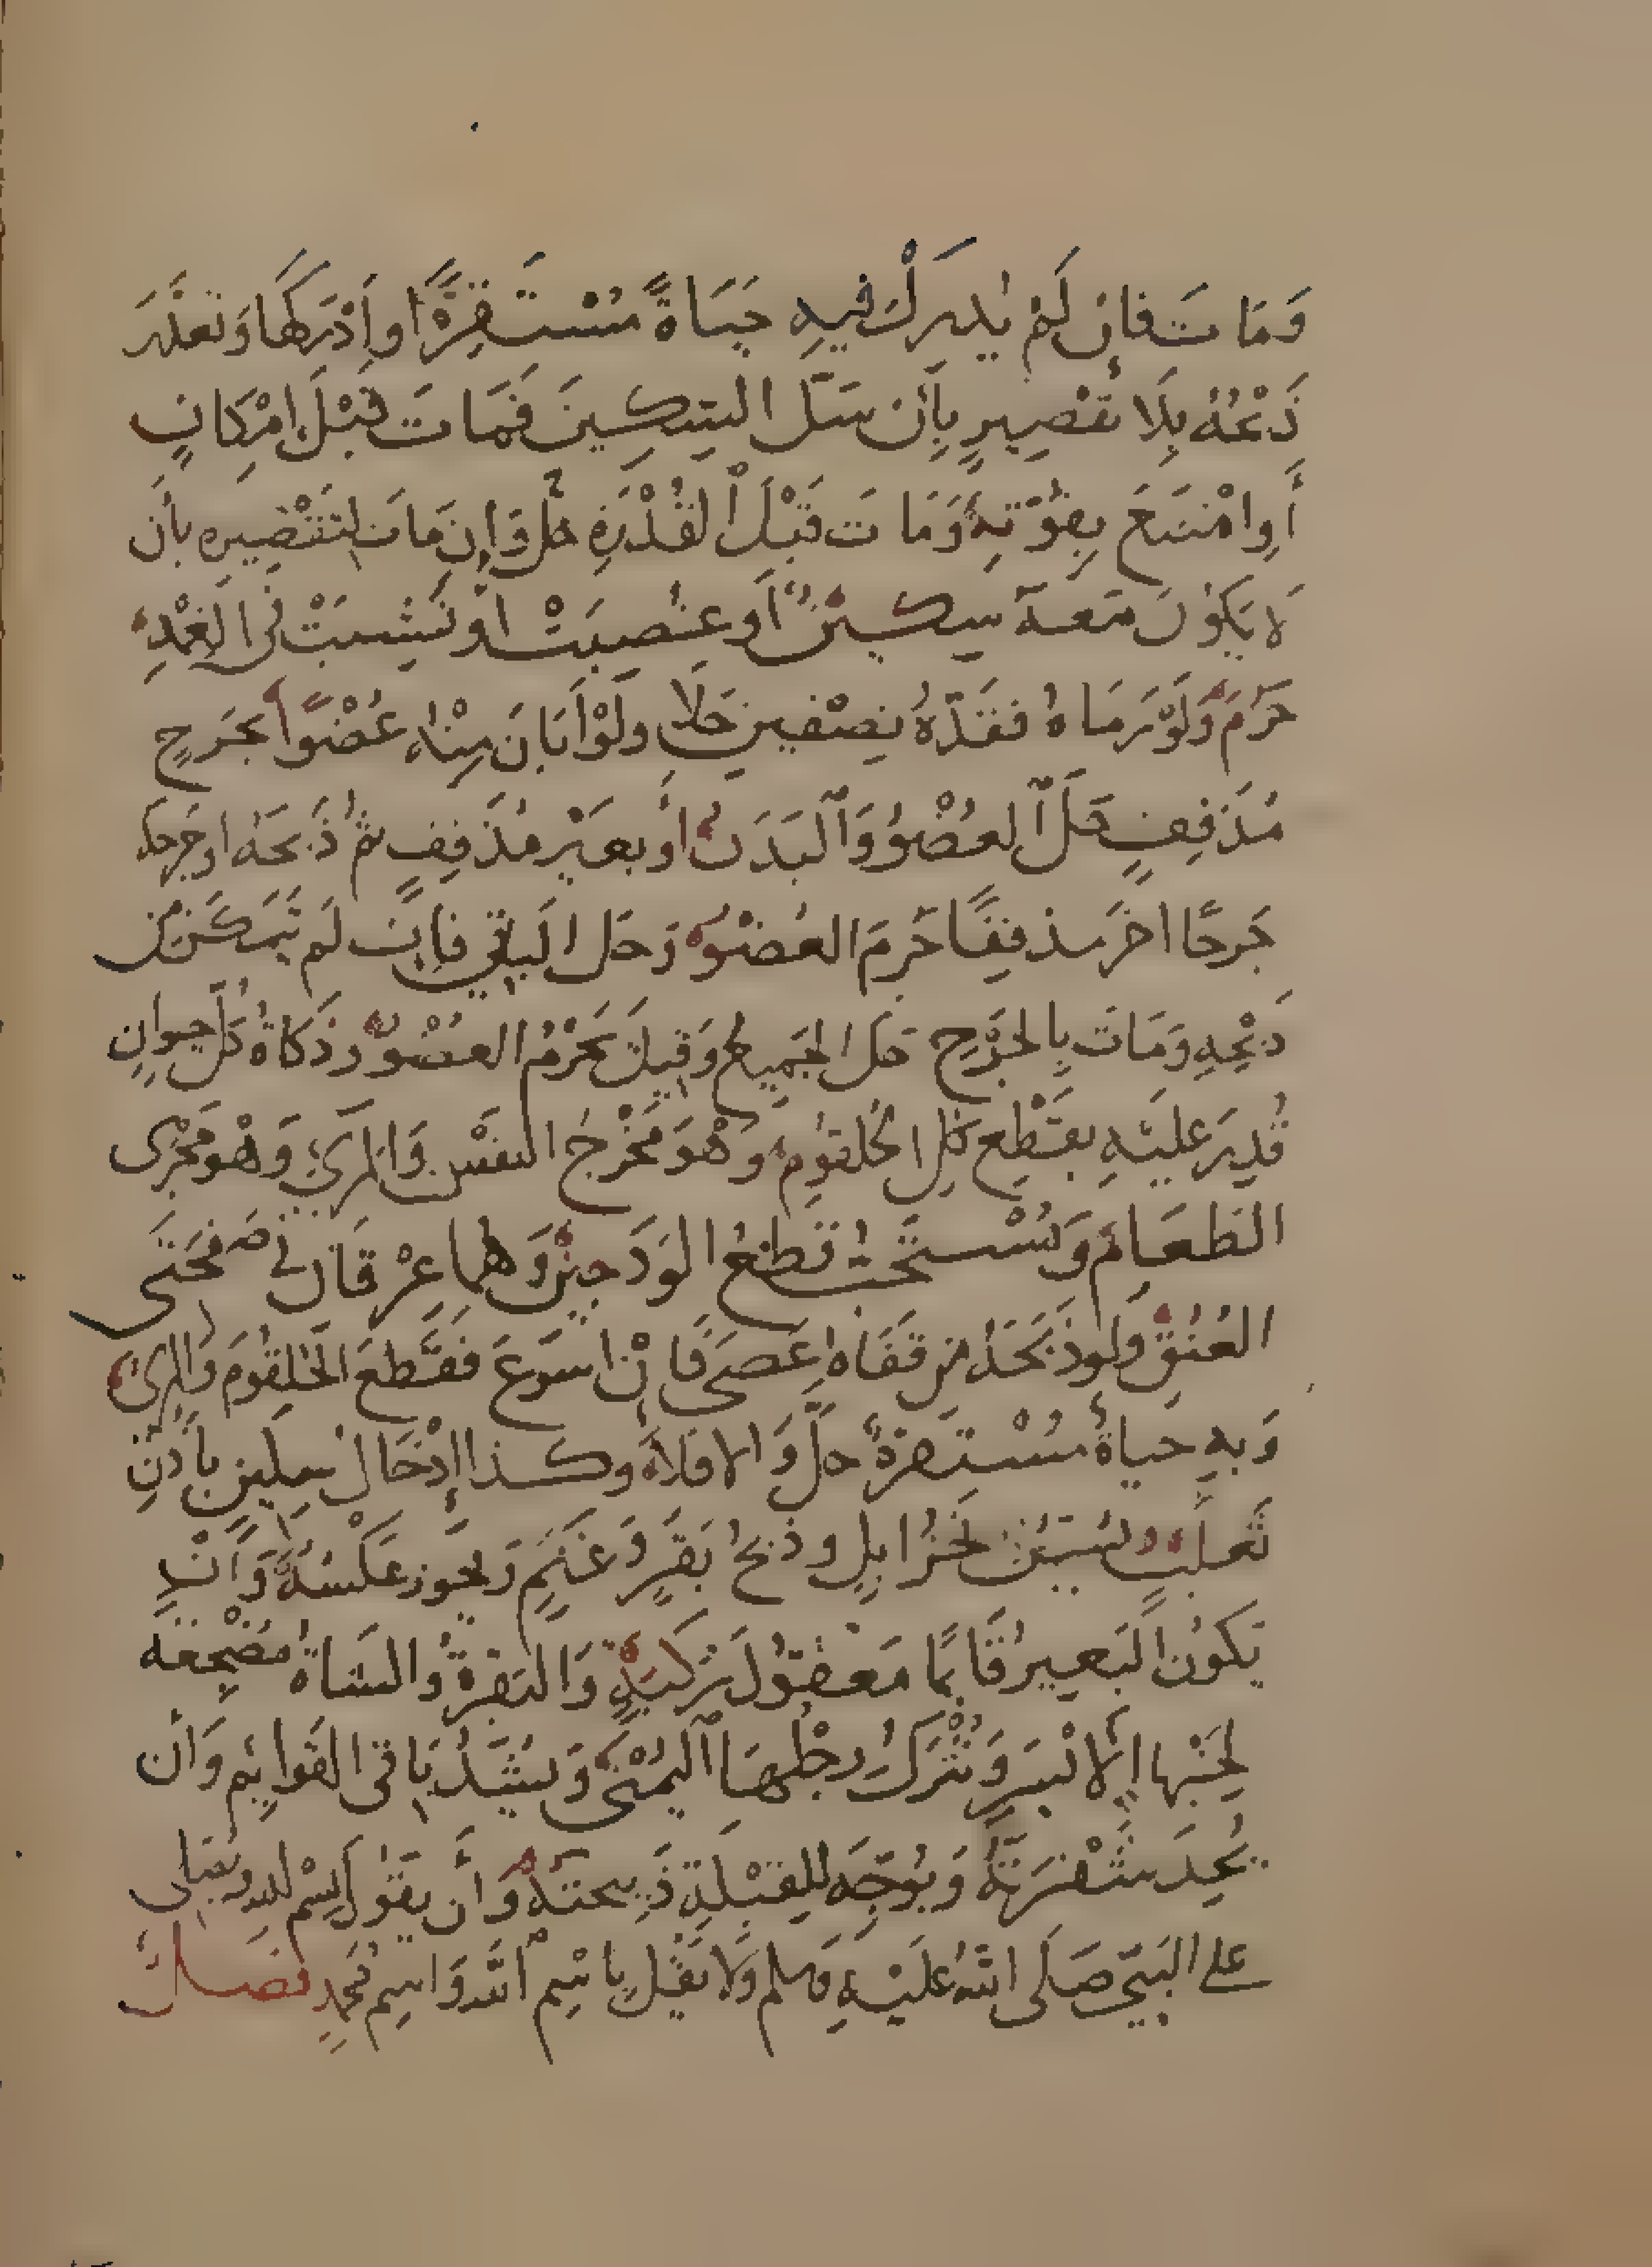 وَمَا تَ فَإِن لَمْ يُدْرِكْ فيهِ حَيَاةً مُسْتَقِرَّةً او اَدْرَكَهَا وَتَعَذَّرَ
ذَبْحُهُ بِلَا تَقْصِيرٍ بِأَن سَلَّ السِّكِينَ فَمَاتَ قَبْلَ اِمْكَانٍ
أَوِ امْتَنَعَ بِقُوَّتِهِ وَمَا تَ قَبْلَ الْقُدْرَةِ حَلَّ وَإِن مَاتَ لتَقْصِيرِهِ بأَن
لَا يَكُوْنَ مَعَهُ سِكِينٌ اَو غُصِبَتْ اَوْ نَشِبَتْ فى الغِمْدِ
حَرُمَ وَلَوْ رَمَاهُ فَقَدَّهُ نِصْفين حَلَّا ولَوْ اَبَانَ مِنْهُ عُضْوًا بجَرحٍ
مُذَفِفٍ حَلَّ العُضْوُ وَالْبَدَنُ أَو بغَيْر مُذَفِفٍ ثمُ ذَبحَهُ او جَرحَهُ
جَرحًا اخَر مذففًا حَرُمَ العُضْوُ وَحَل الَباقي فاِن لَم يَتَمَكَن مِن
ذَبْحِهِ وَمَاتَ بِالجَرْحِ حَل الجَمِيعُ وَقيِلَ يَحْرُمُ العُضْوُ وذَكَاةُ كُل حيوانٍ
قُدِرَ عَليْهِ بقَطْعِ كلِ الحُلقُومِ وَهْوَ مَخْرَجُ النفَسْ وَالمَرِئِ وَهْوَ مَجْرَى
الطعَامِ وَيُسْتَحَبُّ قَطعُ الوَدَجينْ وَهُما عِرْقَان في صَفْحَتَى
العُنُقِ ولَو ذَبَحَهُ مِن قَفَاهُ عَصَى فَإِنْ اسرَعَ فَقَطعَ الحُلقُومَ وَالمرئَ
وَبهِ حَياةٌ مُسْتَقِرَّةٌ حَلَّ وَالا فَلاَ وكَذا إِدْخَال سكينٍ بأُذنِ
ثَعلَبٍ ويُسَنُّ نَحْرُ ابِلٍ وذَبحُ بَقَرٍ وَغَنَمٍ وَيجَوز عَكْسُهُ وَأَنْ
يَكوُن البَعِيرُ قَائمًا مَعْقوُلَ رُكبَةٍ وَالبَقرةُ وَالشاةُ مُضْجعَة
لِجَنْبِها الأيْسَرِ وَتُتْرَكُ رِجْلُهَا اليُمْنَى وَيُشَدُّ بَاقي القَوايِم وَأن
يُحِدَ شَفْرَتَهُ وَيُوَجِّهَ للقِبْلةِ ذَبِيحَتَهُ وَأن يقَوُل بِسْم اللهِ ويُصَلى
على النَبيّ صَلَّى اللّهُ عَلَيْهِ وَسلم وَلا يَقُل باسْمِ اللّهِ وَاسِم مُحمدٍ فصـل